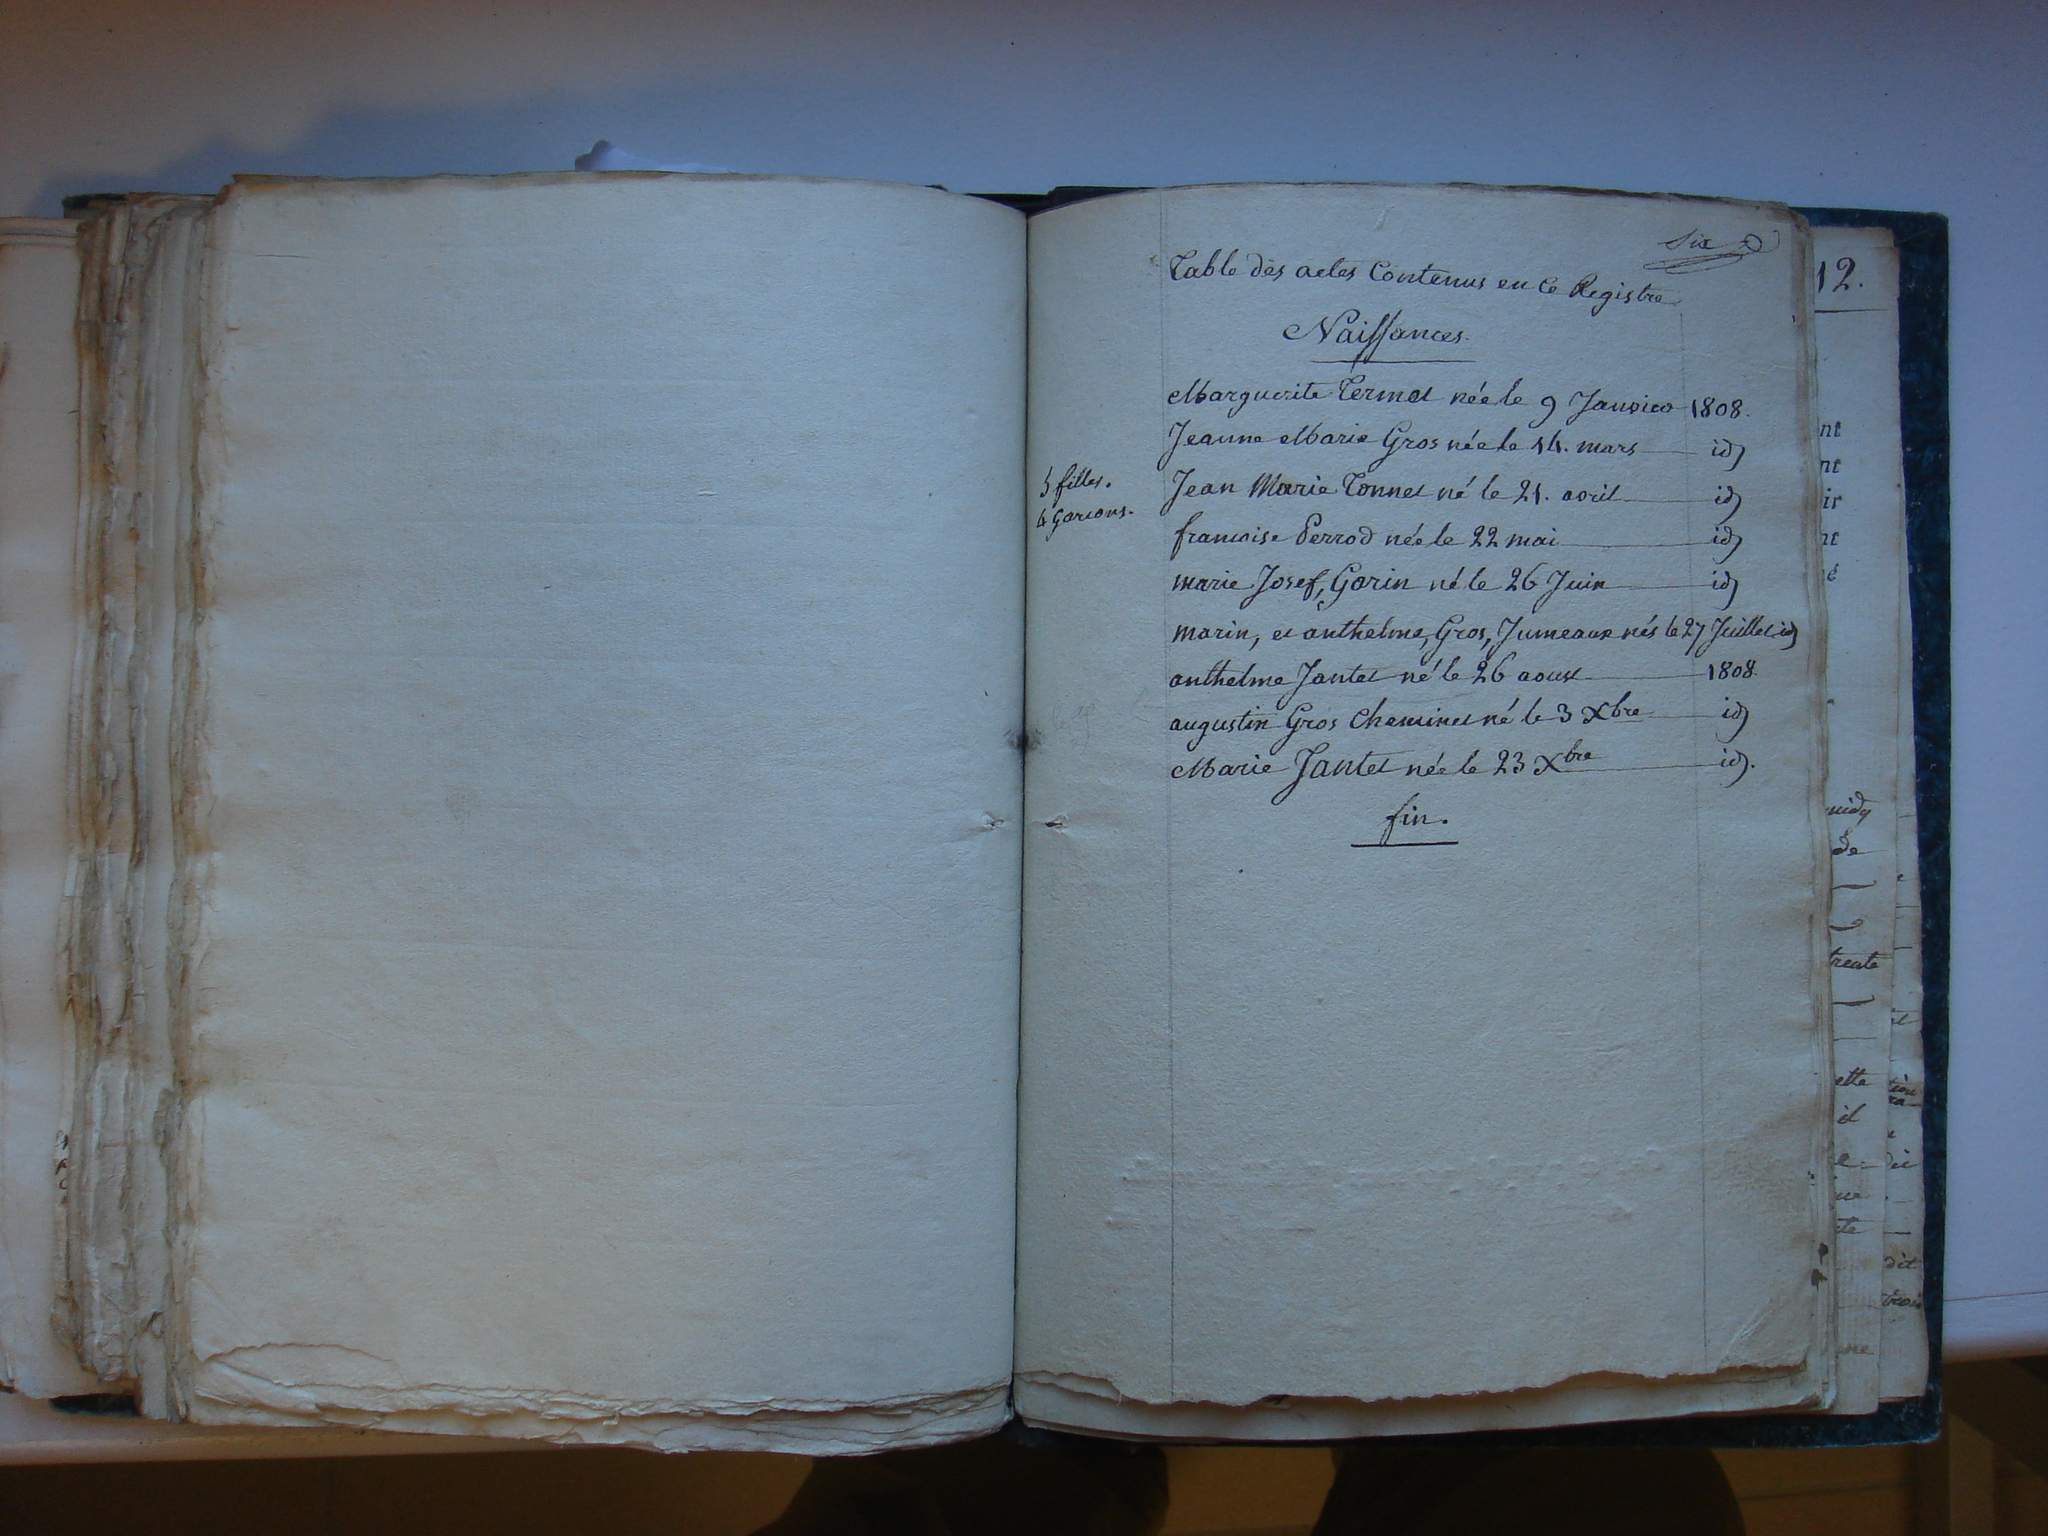 Six
Table des actes Contenus en ce Registre
Naissances.
Marguerite Termet née le 9 Janvier 1808.
Jeanne Marie Gros née le 14. mars id
5 filles.
4 Garcons.
Jean Marie Tonnet né le 21. avril id
francoise Perrod née le 22 mai id
marie Josef, Gorin né le 26 Juin id
marin, et anthelme, Gros, Jumeaux nés le 27 Juillet id
anthelme Jantet né le 26 aoust 1808
augustin Gros Cheminet né le 3 Xbre id
Marie Jantet née le 23 Xbre id.
fin.
12.
nt
nt
ir
nt
de
trente
ette
il
dit
trois